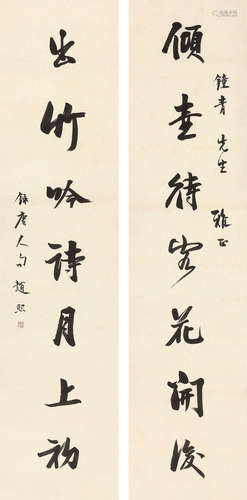 鐘青先生雅正
傾壺待客花開後
出竹吟詩月上初
錄唐人句 趙熙